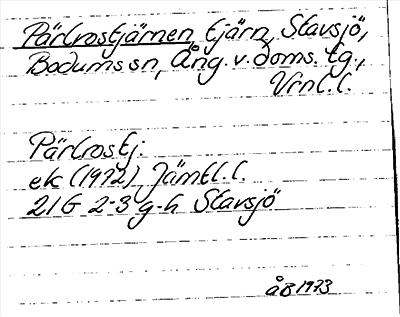 Pärlrostjärnen, tjärn, Stavsjö,
Bodums sn, Ång. v. doms. tg.,
Vrnl. l.
Pärlrostj.
ek (1972) Jämtl. l.
21G 2-3 g-h Stavsjö
ÅB 1973